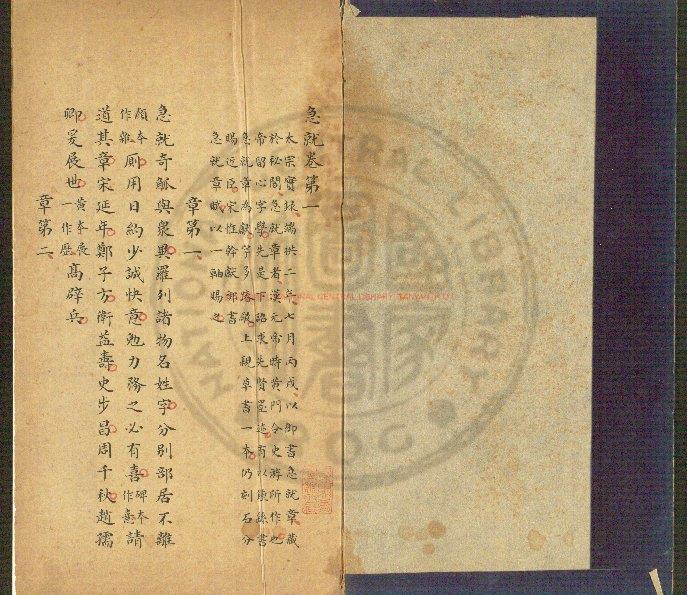 急就卷第一
太宗實錄端拱二年七月丙戌以御書急就章藏
於秘閣急就章者漢元帝時黃門令史游所作也
帝留心字學先是下詔求先賢墨迹有以
急就章為獻字多
上親草書一本仍刻石分
賜近臣宋
急就章賦以一軸賜之
章第一
急就奇觚與衆異羅列諸物名姓字分別部居不雜
顏本
作雜
廁用日約少誠快意勉力務之必有喜
碑本
作憙
請
道其章宋延年鄭子方衛益壽史步昌周千秋趙孺
卿爰展世
黃本展
一作歷
高辟兵
章第二
NATIONAL CENTRAL LIBRARY
ROC